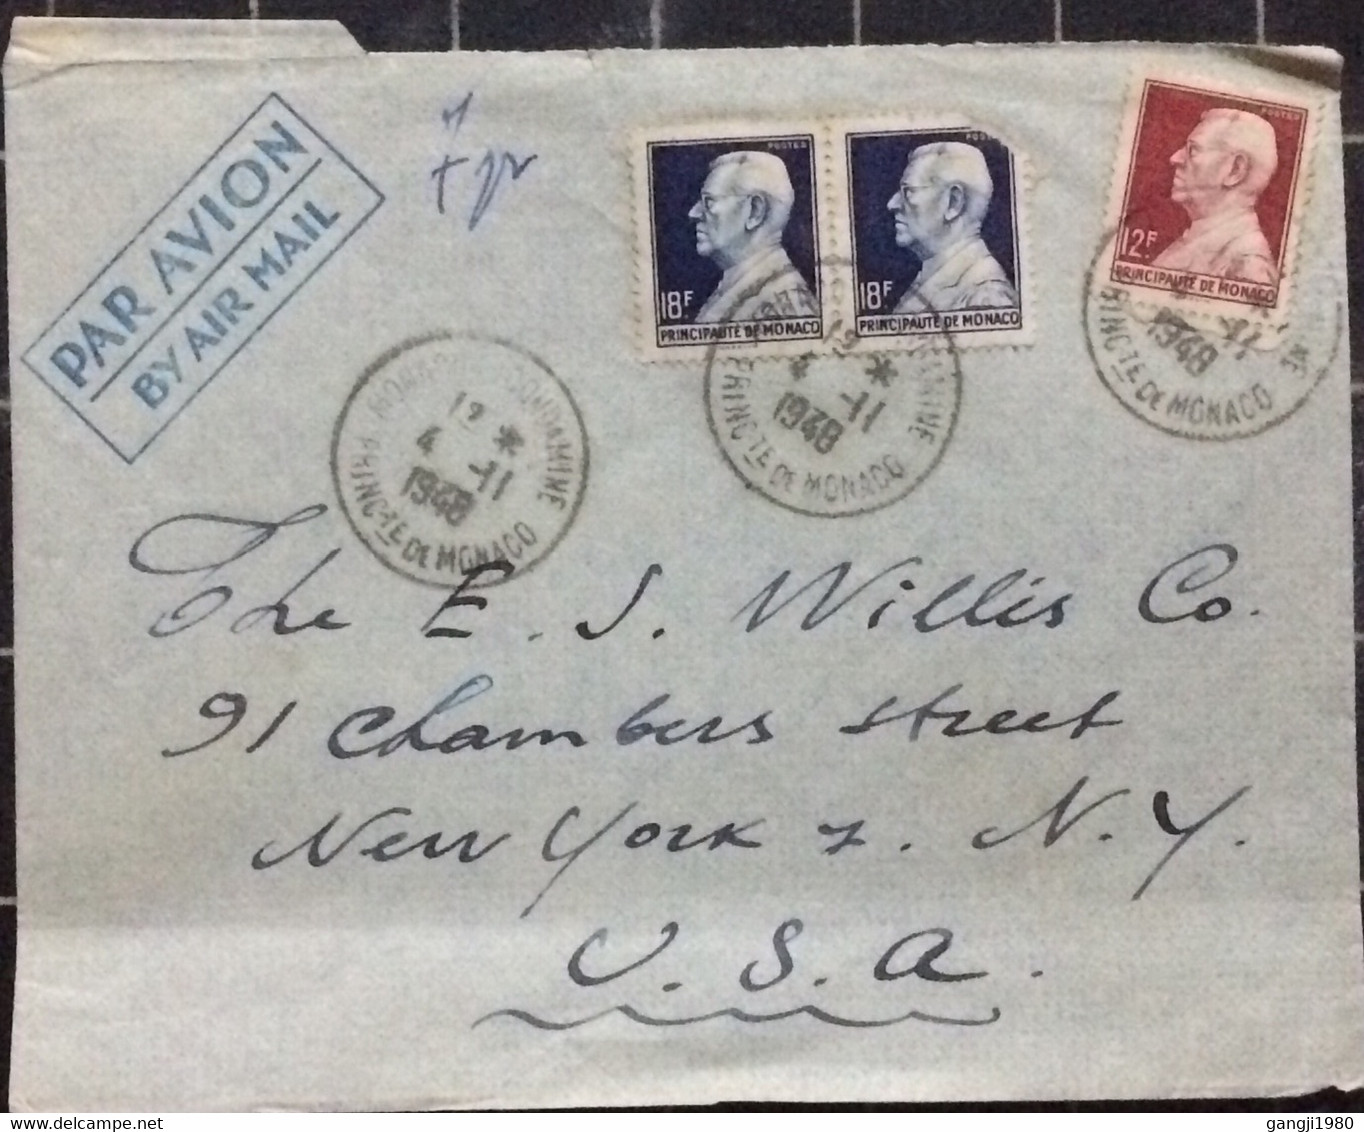 PAR AVION
BY AIR MAIL
7 gr
POSTES
18F
PRINCIPAUTÉ DE MONACO
POSTES
18F
PRINCIPAUTÉ DE MONACO
POSTES
12F
PRINCIPAUTÉ DE MONACO
CONDAMINE
12 *
4 -11
1948
PRINC-TE DE MONACO
12 *
4 -11
1948
PRINC-TE DE MONACO
-11
1948
PRINC-TE DE MONACO
The E. J. Willis Co.
91 Chambers Street
New York 7. N.Y.
U.S.A.
www.delcampe.net
gangji1980